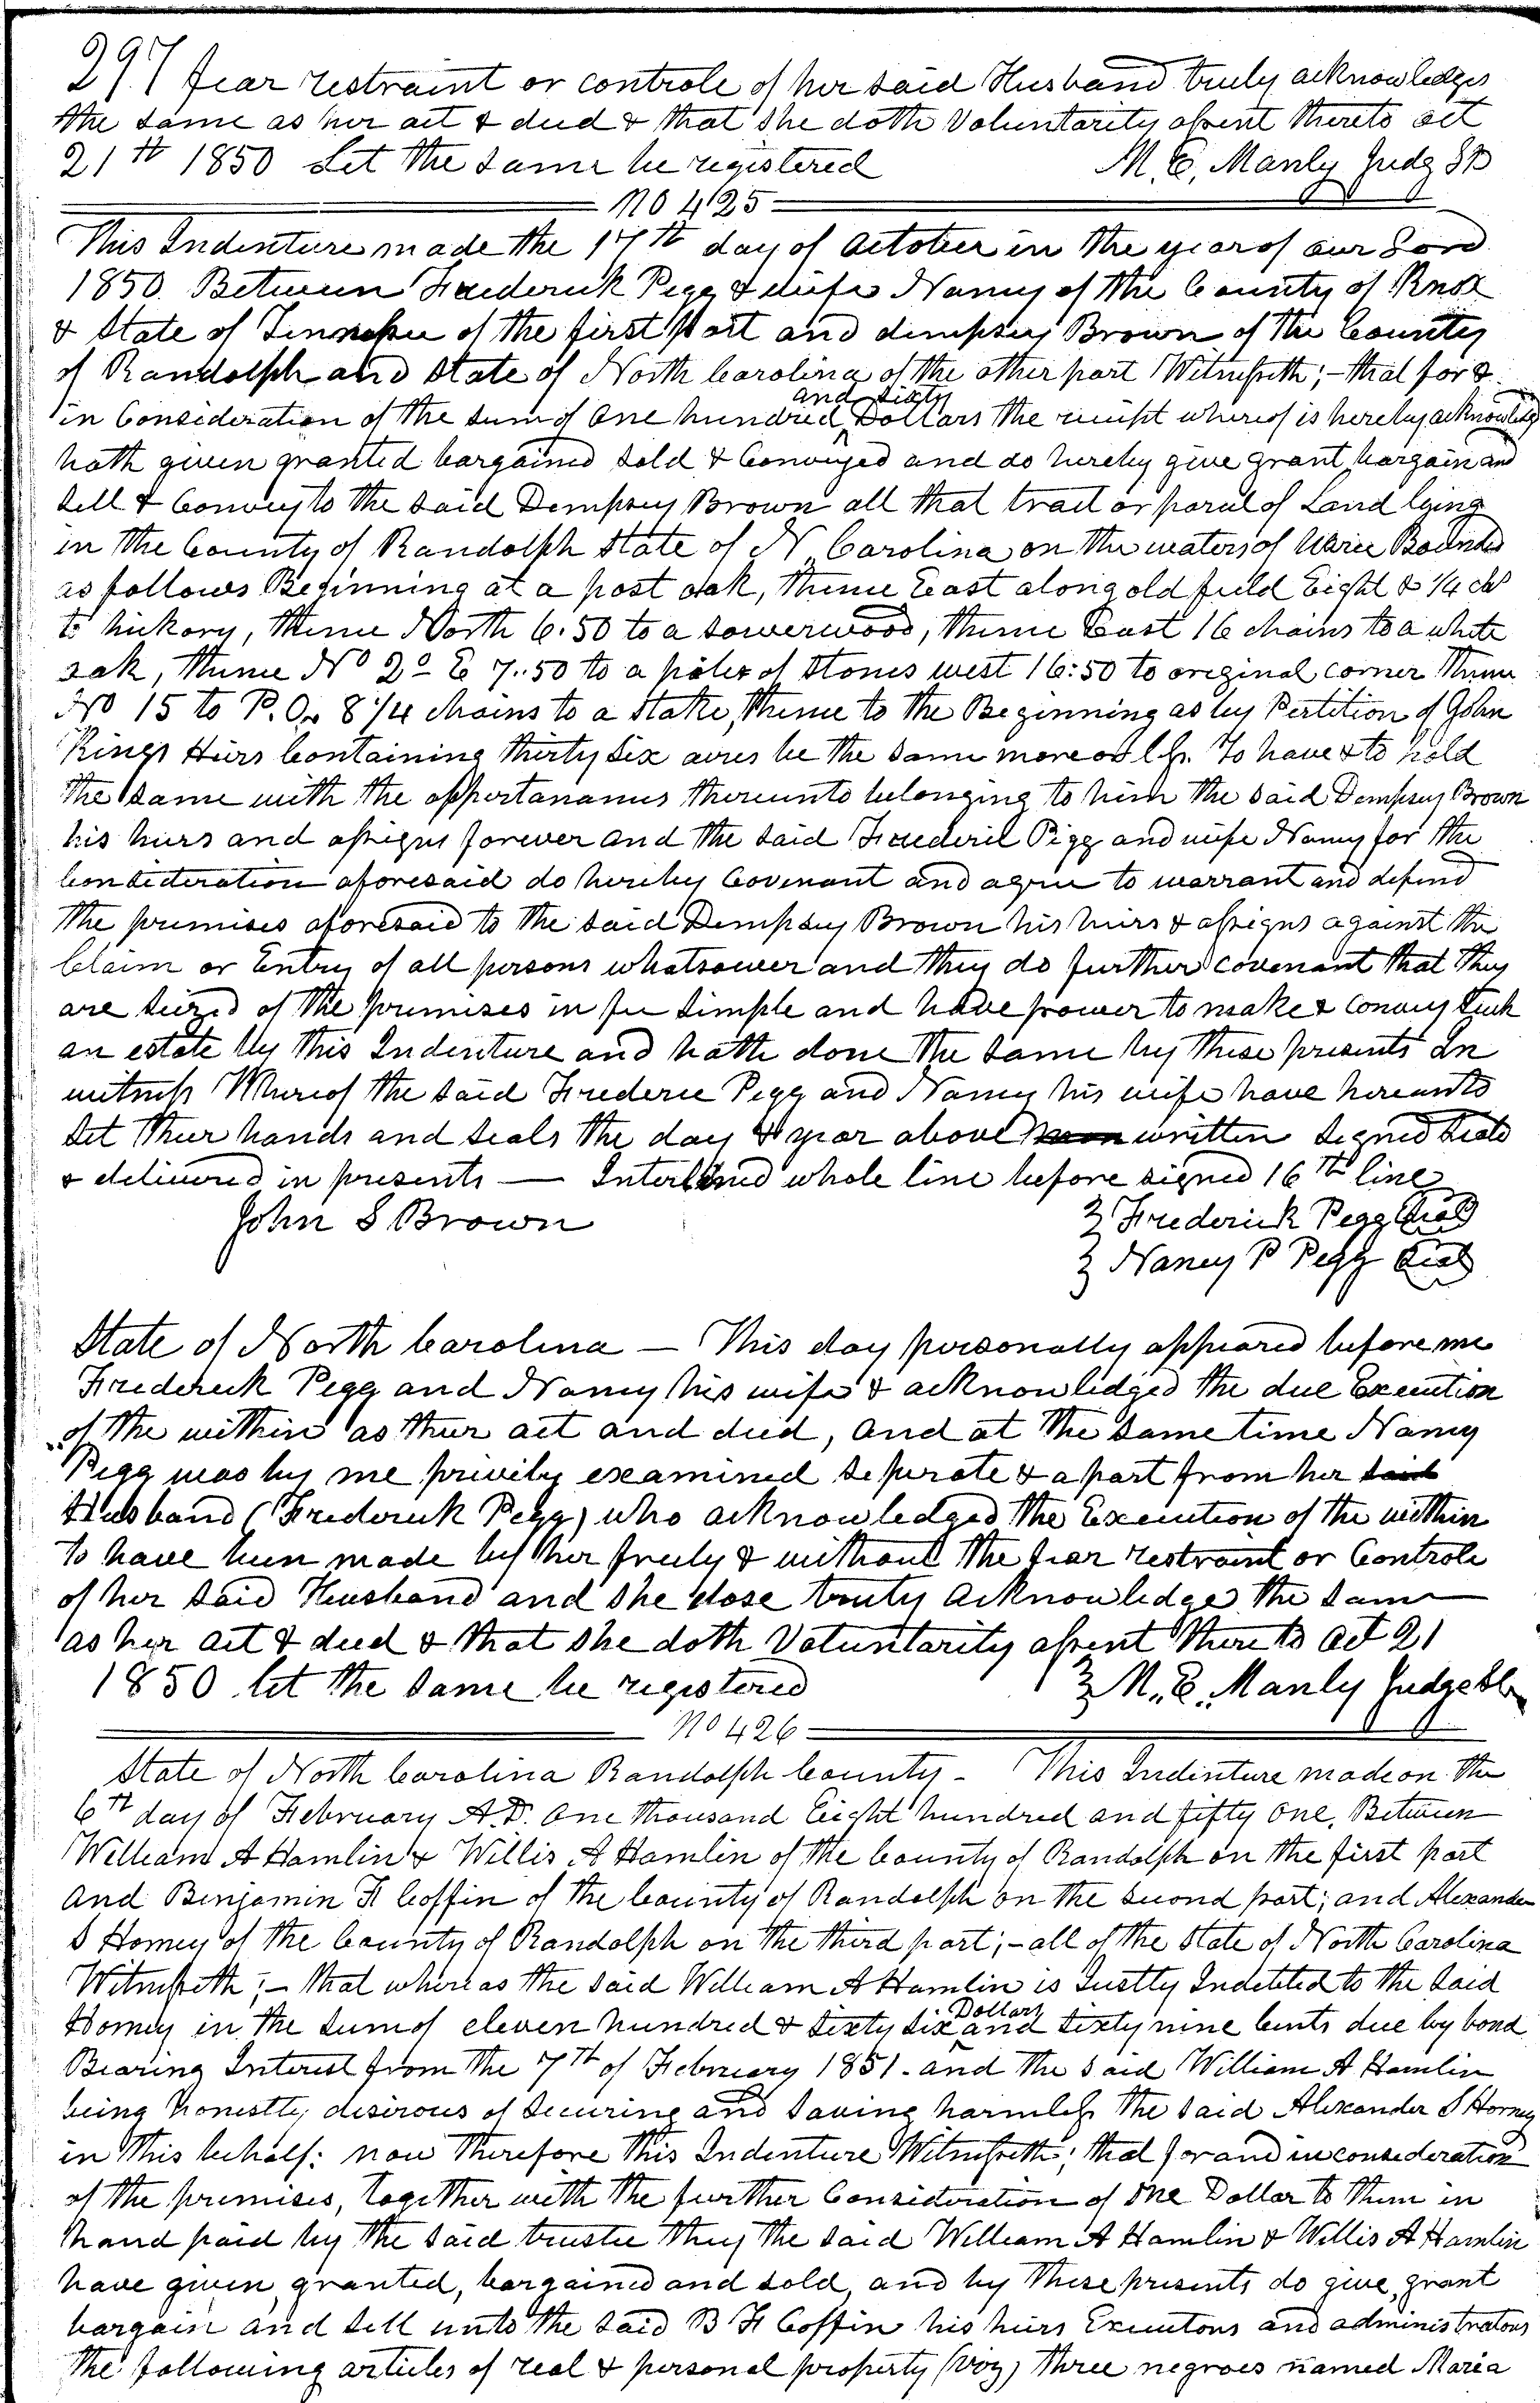 297 fear restraint or controle of her said Husband truly acknowledges
the same as her act & deed & that she doth Voluntarily assent thereto oct
21st 1850 Let the same be registered M. E. Manly Judg
No 425
This Indenture made the 17th day of October in the year of our Lord
1850. Between Frederick Pegg & wife Nancy of the County of Knox
& State of Tennessee of the first part and dempsey Brown of the County
of Randolph and State of North Carolina of the other part Witnesseth; - that for &
in Consideration of the sum of One hundred and sixty Dollars the receipt whereof is hereby acknowledg
hath given granted bargained sold & Conveyed and do hereby give grant bargain and
sell & Convey to the said Dempsey Brown all that tract or parcel of Land lying
in the County of Randolph State of N. Carolina on the waters of Uarie Bounded
as follows Beginning at a post oak, thence East along old field Eight & 1/4 chs
to hickory, thence North 6.50 to a sowerwood, thence East 16 chains to a white
oak, thence No 2° E 7.50 to a piler of stones west 16:50 to original corner thence
No 15 to P.O. 8 1/4 chains to a stake, thence to the Beginning as by Pertition of John
Kings Heirs Containing thirty six acres be the same more or less. To have & to hold
the same with the appertanances thereunto belonging to him the said Dempsey Brown
his heirs and assigns forever and the said Frederic Pegg and wife Nancy for the
Consideration aforesaid do hereby Covenant and agree to warrant and defend
the premises aforesaid to the said Dempsey Brown his heirs & assigns against the
Claim or Entry of all persons whatsoever and they do further covenant that they
are seized of the premises in fee simple and have power to make & convey such
an estate by this Indenture and hath done the same by these presents In
witness Whereof the said Frederic Pegg and Nancy his wife have hereunto
set their hands and seals the day & year above written signed seald
& delivered in presents — Interlined whole line before signed 16th line
John S Brown Frederick Pegg Seal
Nancy P Pegg Seal
State of North Carolina — This day personally appeared before me
Frederick Pegg and Nancy his wife & acknowledged the due Execution
of the within as their act and deed, and at the same time Nancy
Pegg was by me privily examined seperate & apart from her said
Husband (Frederick Pegg) who acknowledged the Execution of the within
to have been made by her freely & without the fear restraint or Controle
of her said Husband and she dose truly acknowledge the same
as her act & deed & that she doth Voluntarily assent thereto Oct 21
1850 let the same be registered M. E. Manly Judge
No 426
State of North Carolina Randolph County - This Indenture made on the
6th day of February A.D. One thousand Eight hundred and fifty one, Between
William A Hamlin & Willis A Hamlin of the County of Randolph on the first part
and Benjamin F Coffin of the County of Randolph on the second part; and Alexander
S Horney of the County of Randolph on the third part; - all of the State of North Carolina
Witnesseth; - that whereas the said William A Hamlin is Justly Indebted to the said
Horney in the sum of eleven hundred & sixty six Dollars and sixty nine cents due by bond
Bearing Interest from the 7th of February 1851. and the said William A Hamlin
being honestly desirous of securing and saving harmless the said Alexander S Horney
in this behalf: now therefore this Indenture Witnesseth; that for and in consideration
of the premises, together with the further Consideration of One Dollar to them in
hand paid by the said trustee they the said William A Hamlin & Willis A Hamlin
have given, granted, bargained and sold, and by these presents do give, grant
bargain and sell unto the said B F Coffin his heirs Executors and administrators
the following articles of real & personal property (viz) three negroes named Maria